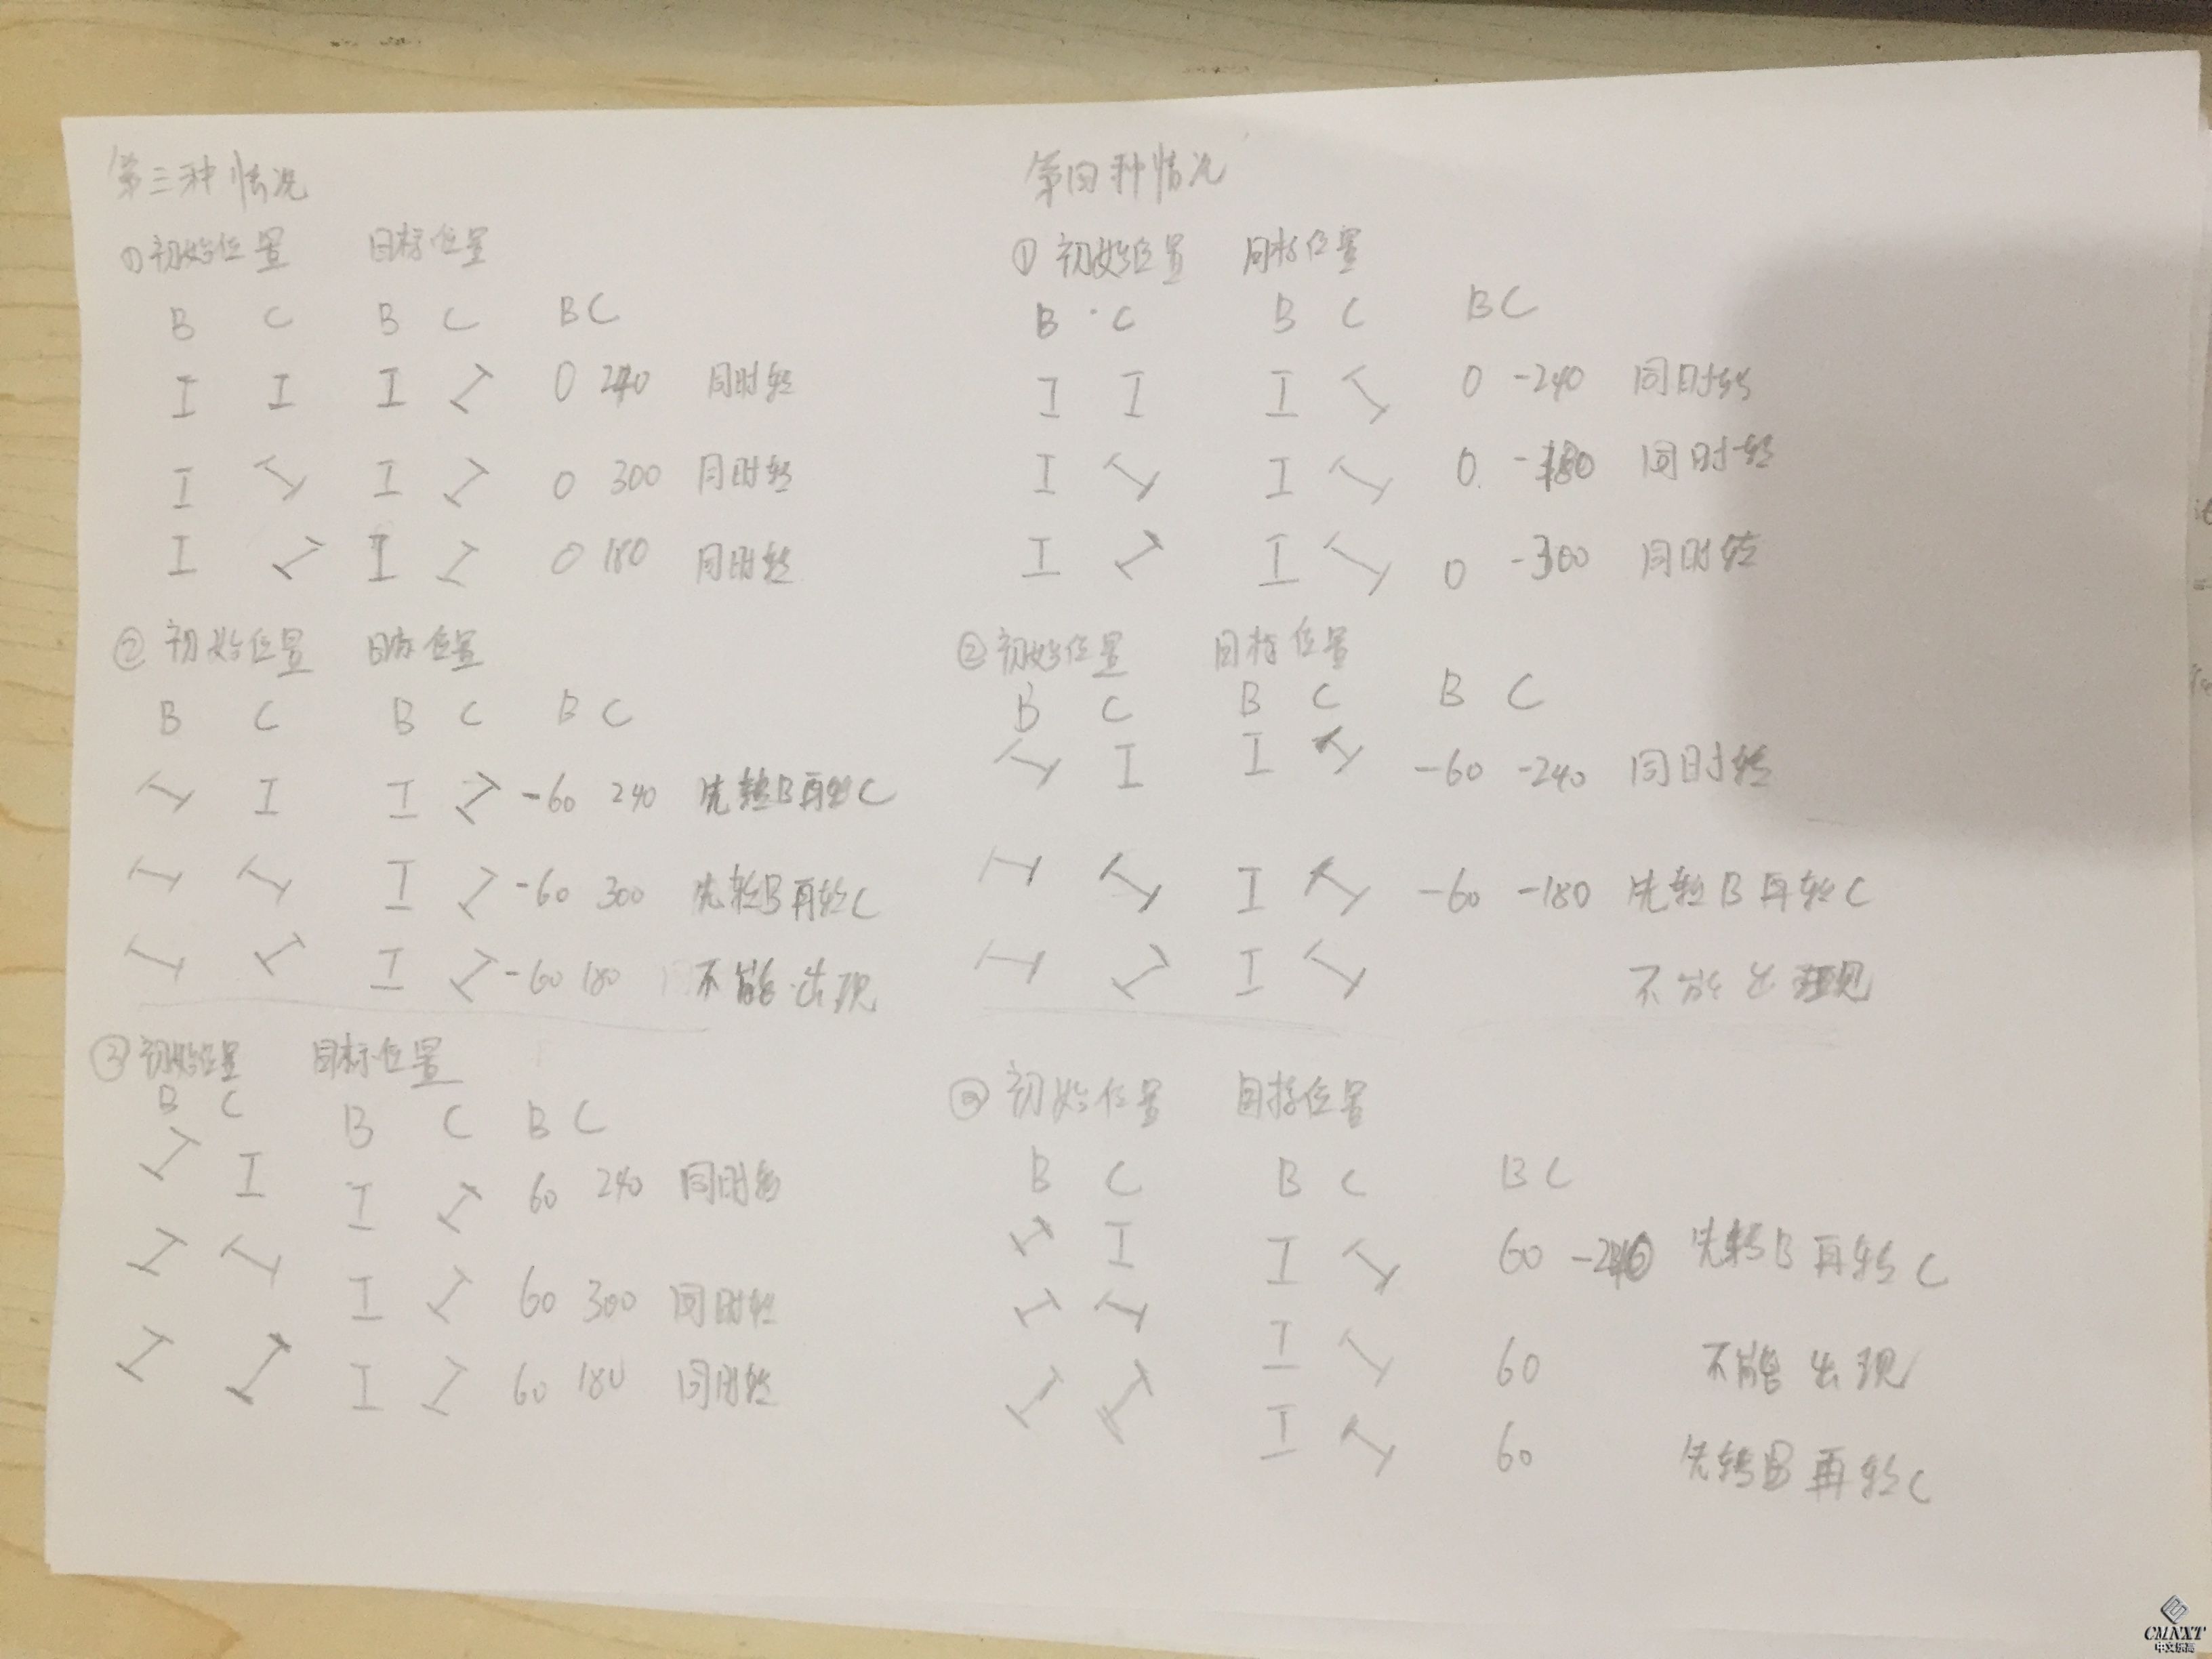 第三种情况
①初始位置 目标位置
B C B C BC
I I I I 0 240 同时转
I I I I 0 300 同时转
I I I I 0 180 同时转
②初始位置 目标位置
B C B C B C
I I I I -60 240 先转B再转C
I I I I -60 300 先转B再转C
I I I I -60 180 不能出现
③初始位置 目标位置
B C B C B C
I I I I 60 240 同时转
I I I I 60 300 同时转
I I I I 60 180 同时转
第四种情况
①初始位置 目标位置
B C B C BC
I I I I 0 -240 同时转
I I I I 0 -180 同时转
I I I I 0 -300 同时转
②初始位置 目标位置
B C B C B C
I I I I -60 -240 同时转
I I I I -60 -180 先转B再转C
I I I I 不能出现
③初始位置 目标位置
B C B C BC
I I I I 60 -240 先转B再转C
I I I I 60 不能出现
I I I I 60 先转B再转C
CMNXT
中文乐高